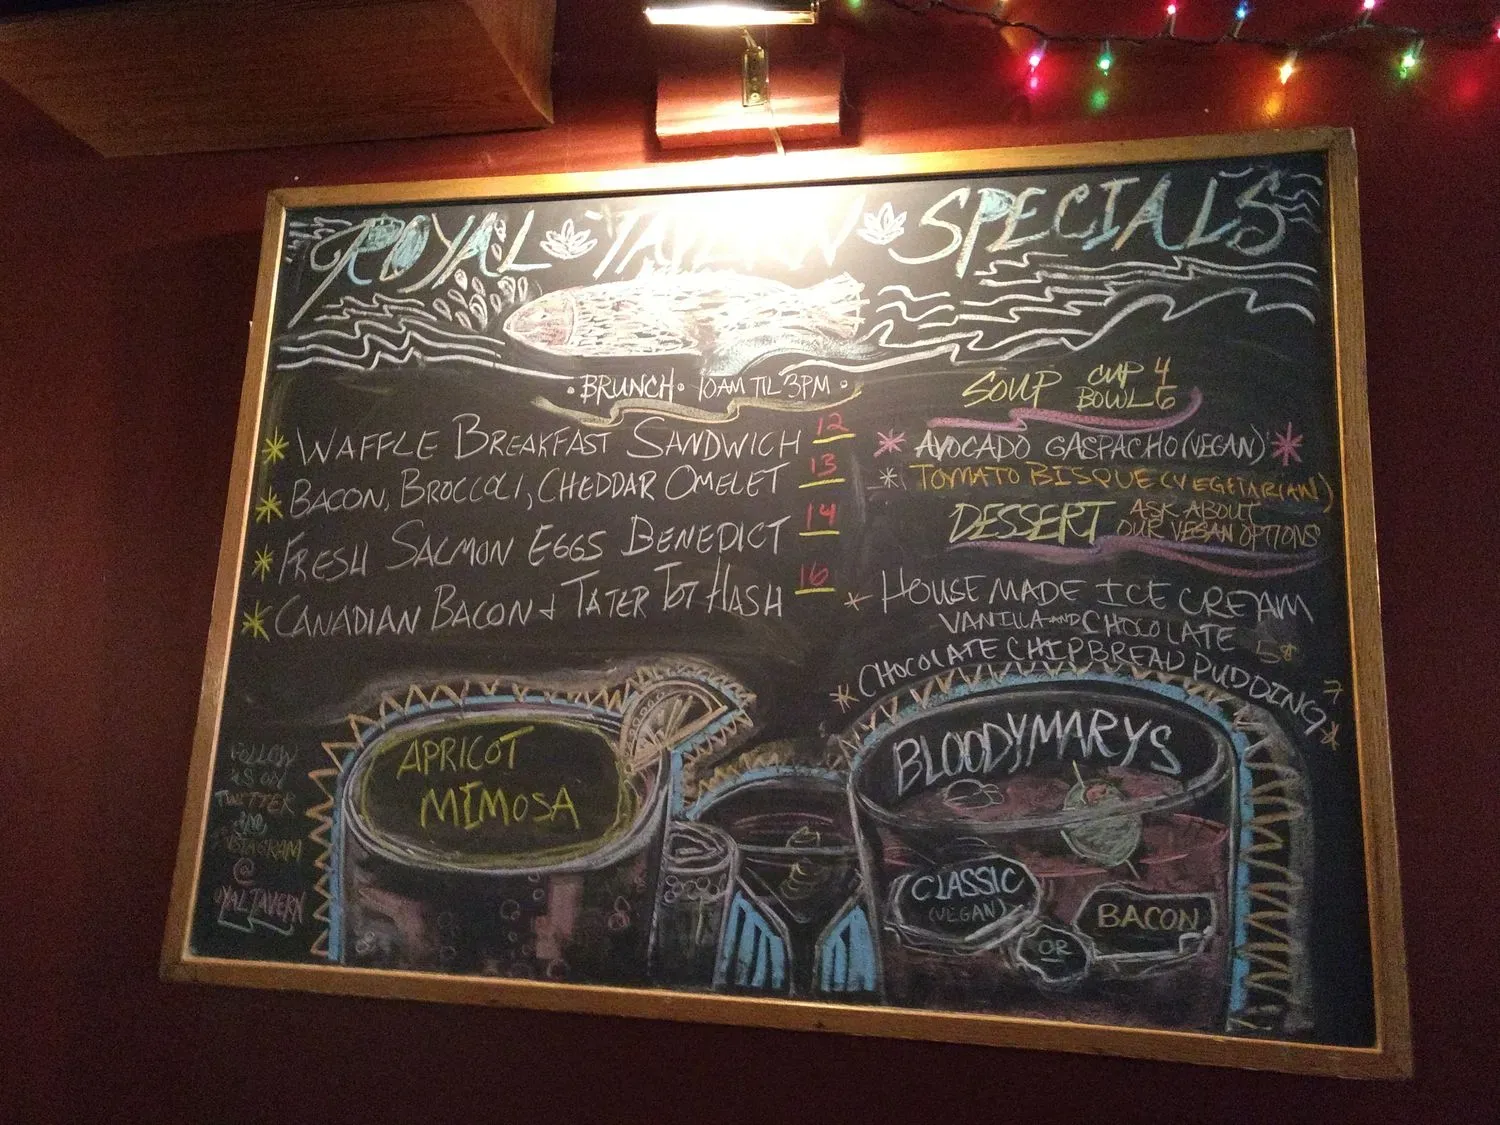 ROYAL TAVERN SPECIALS
• BRUNCH • 10AM TIL 3PM •
WAFFLE BREAKFAST SANDWICH 12
BACON, BROCCOLI, CHEDDAR OMELET 13
FRESH SALMON EGGS BENEDICT 14
CANADIAN BACON & TATER TOT HASH 16
SOUP CUP 4
BOWL 6
AVOCADO GASPACHO (VEGAN)
TOMATO BISQUE (VEGETARIAN)
DESSERT ASK ABOUT
OUR VEGAN OPTIONS
HOUSEMADE ICE CREAM
VANILLA AND CHOCOLATE 5
CHOCOLATE CHIP BREAD PUDDING 7
FOLLOW
US ON
TWITTER
INSTAGRAM
@
ROYALTAVERN
APRICOT
MIMOSA
BLOODYMARYS
CLASSIC
(VEGAN)
OR
BACON